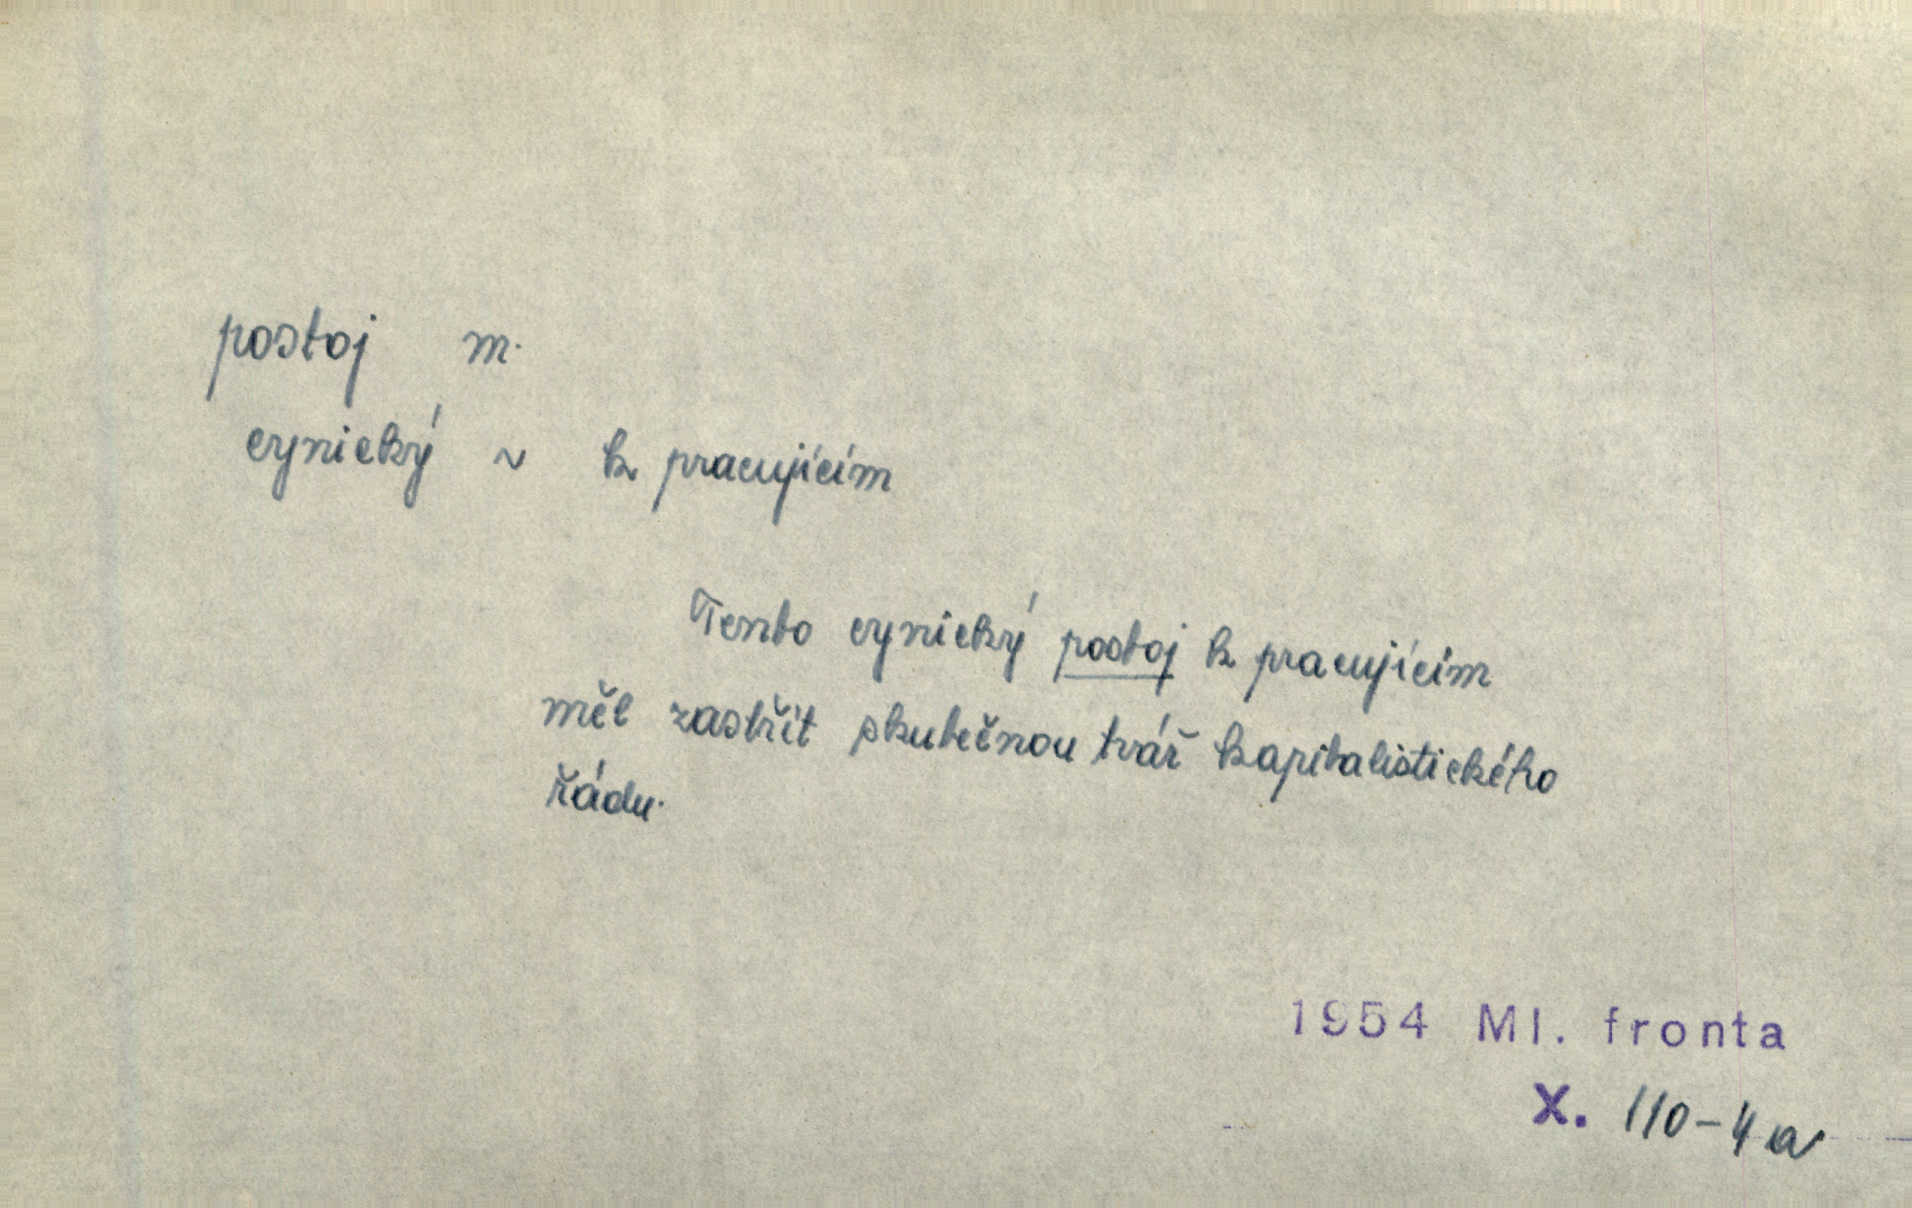 postoj m.
cynický ~ k pracujícím
Tento cynický postoj k pracujícím
měl zastřít skutečnou tvář kapitalistického
řádu.
1954 Ml. fronta
X. 110-4a